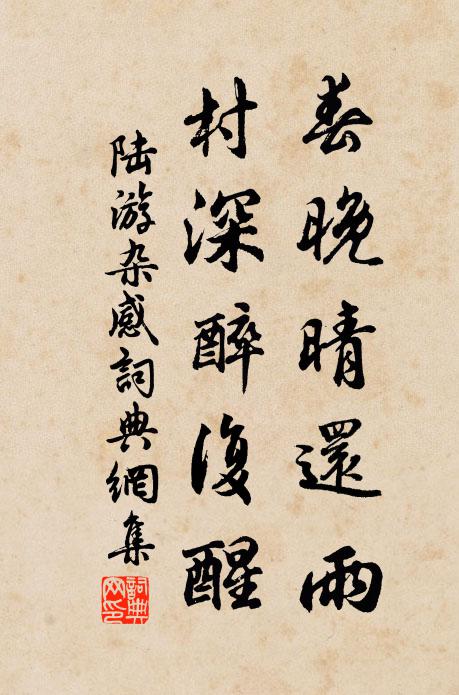 春晚晴還雨
村深醉復醒
陆游杂感詞典網集
詞典
网印